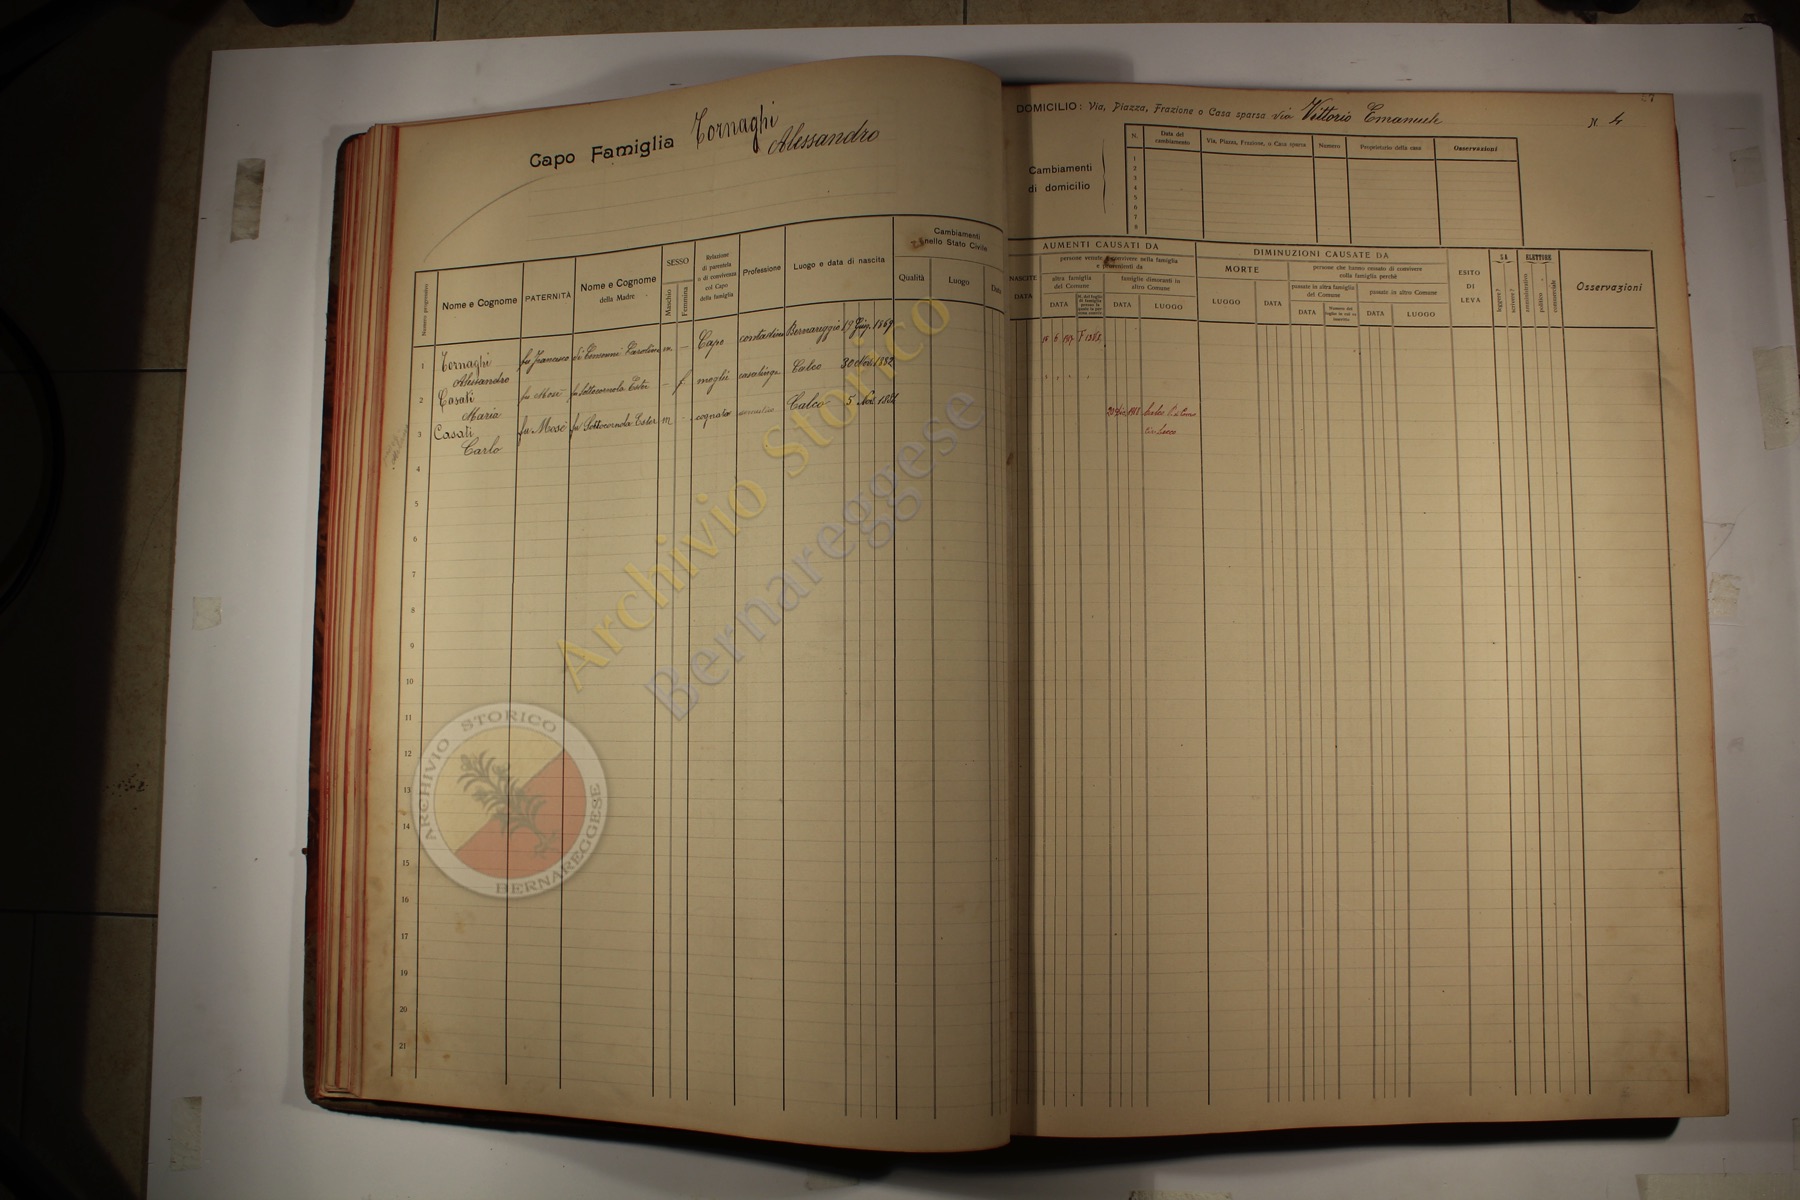 Capo Famiglia Tornaghi
Alessandro
Numero progressivo
Nome e Cognome
PATERNITÀ
Nome e Cognome
della Madre
SESSO
Maschio
Femmina
Relazione
di parentela
o di convivenza
col Capo
della famiglia
Professione
Luogo e data di nascita
Cambiamenti
nello Stato Civile
Qualità
Luogo
Data
1 Tornaghi fu Francesco di Consonni Carolina m. - Capo contadino Bernareggio 19 Giug. 1869
Alessandro
2 Casati fu Mosè fu Sottocornola Ester - f moglie casalinga Calco 30 Nov. 1882
Maria
3 Casati fu Mosè fu Sottocornola Ester m - cognato Calco 5 Nov.
Carlo
4
5
6
7
8
9
10
11
12
13
14
15
16
17
19
20
21
DOMICILIO: Via, Piazza, Frazione o Casa sparsa via Vittorio Emanuele N. 4
Cambiamenti
di domicilio
N.
Data del
cambiamento
Via, Piazza, Frazione, o Casa sparsa
Numero
Proprietario della casa
Osservazioni
1
2
3
4
5
6
7
8
NASCITE
DATA
AUMENTI CAUSATI DA
persone venute a convivere nella famiglia
e provenienti da
altra famiglia
del Comune
DATA
famiglie dimoranti in
altro Comune
DATA
LUOGO
DIMINUZIONI CAUSATE DA
MORTE
LUOGO
DATA
persone che hanno cessato di convivere
colla famiglia perchè
passate in altra famiglia
del Comune
DATA
passate in altro Comune
DATA
LUOGO
ESITO
DI
LEVA
SA
leggere?
scrivere?
ELETTORE
amministrativo
politico
commerciale
Osservazioni
F 1363
Archivio Storico
Bernareggese
ARCHIVIO STORICO
BERNAREGGESE